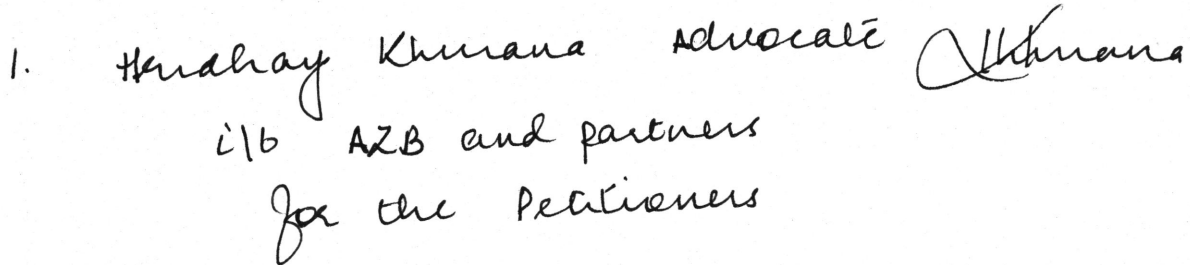 1. Hrudhay Khurana Advocate HKhurana
i/b AZB and partners
for the Petitioners